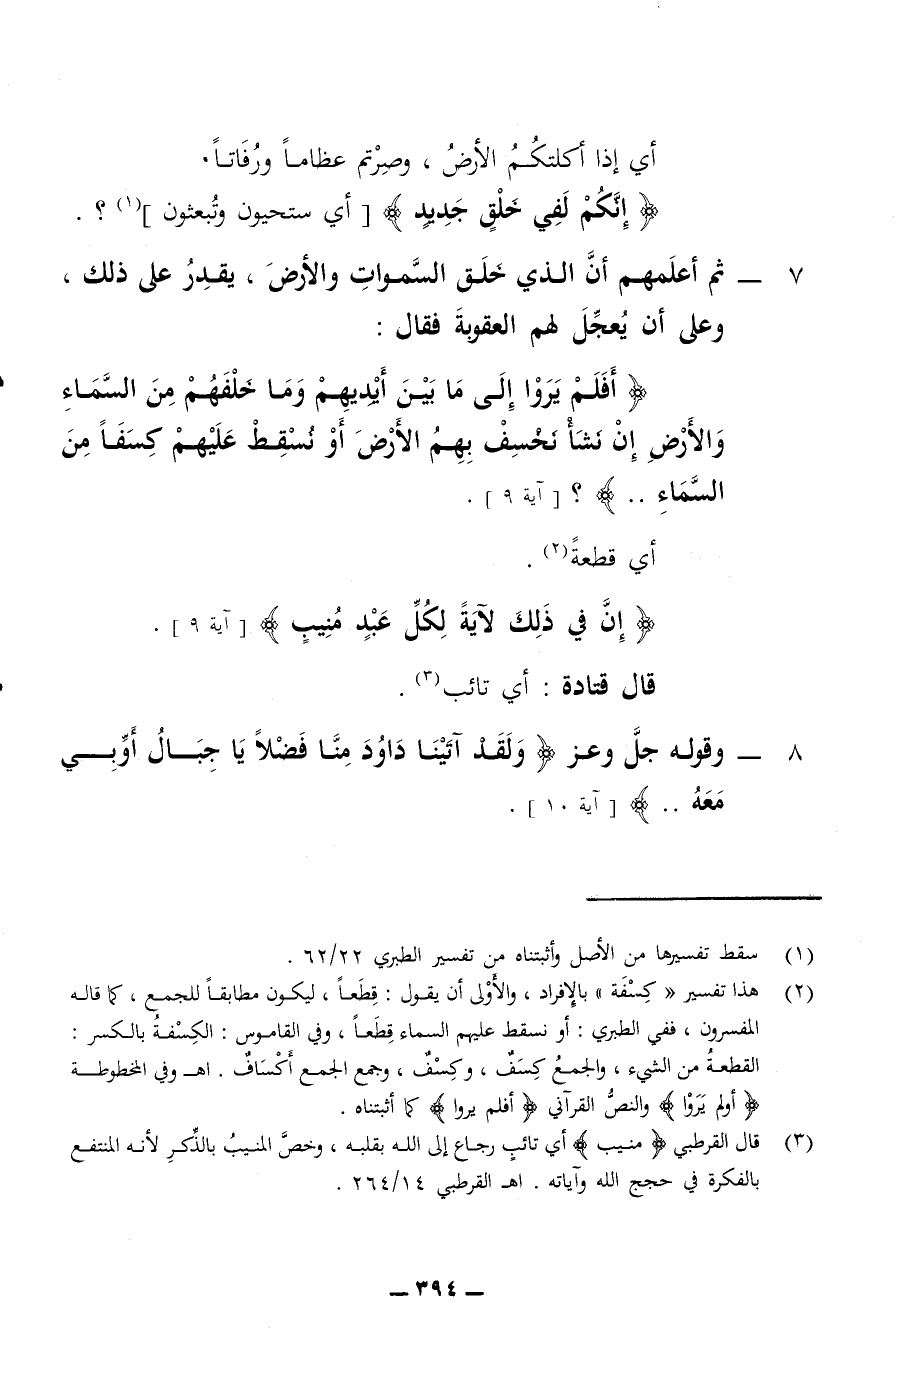 أي إذا أكلتكُمُ الأرضُ ، وصِرْتم عظاماً ورُفَاتاً .
﴿ إِنَّكُمْ لَفِي خَلْقٍ جَدِيدٍ ﴾ [ أي ستحيون وتُبعثون ](١) ؟ .
٧ ــ ثم أعلَمهم أنَّ الذي خَلَق السَّمواتِ والأرضَ ، يقدِرُ على ذلك ،
وعلى أن يُعجِّلَ لهم العقوبةَ فقال :
﴿ أَفَلَمْ يَرَوْا إِلَى مَا بَيْنَ أَيْدِيهِمْ وَمَا خَلْفَهُمْ مِنَ السَّمَاءِ
وَالأَرْضِ إِنْ نَشَأْ نَخْسِفْ بِهِمُ الأَرْضَ أَوْ نُسْقِطْ عَلَيْهِمْ كِسَفَاً مِنَ
السَّمَاءِ .. ﴾ ؟ [ آية ٩ ] .
أي قطعةً(٢) .
﴿ إِنَّ في ذَلِكَ لآيَةً لِكُلِّ عَبْدٍ مُنِيبٍ ﴾ [ آية ٩ ] .
قال قتادة : أي تائب(٣) .
٨ ــ وقوله جلَّ وعز ﴿ وَلَقَدْ آتَيْنَا دَاوُدَ مِنَّا فَضْلاً يَا جِبَالُ أَوِّبِي
مَعَهُ .. ﴾ [ آية ١٠ ] .
(١) سقط تفسيرها من الأصل وأثبتناه من تفسير الطبري ٦٢/٢٢ .
(٢) هذا تفسير « كِسْفَة » بالإفراد ، والأَوْلى أن يقول : قِطَعاً ، ليكون مطابقاً للجمع ، كما قاله
المفسرون ، ففي الطبري : أو نسقط عليهم السماء قِطَعاً ، وفي القاموس : الكِسْفةُ بالكسر :
القطعةُ من الشيء ، والجمعُ كِسَفٌ ، وكِسْفٌ ، وجمع الجمع أَكْسَافٌ . اهـ وفي المخطوطة
﴿ أولم يَرَوْا ﴾ والنصُّ القرآني ﴿ أفلم يروا ﴾ كما أثبتناه .
(٣) قال القرطبي ﴿ منيب ﴾ أي تائبٍ رجاع إلى الله بقلبه ، وخصَّ المنيبُ بالذِّكرِ لأنه المنتفع
بالفكرة في حجج الله وآياته . اهـ القرطبي ٢٦٤/١٤ .
ــ ٣٩٤ ــ